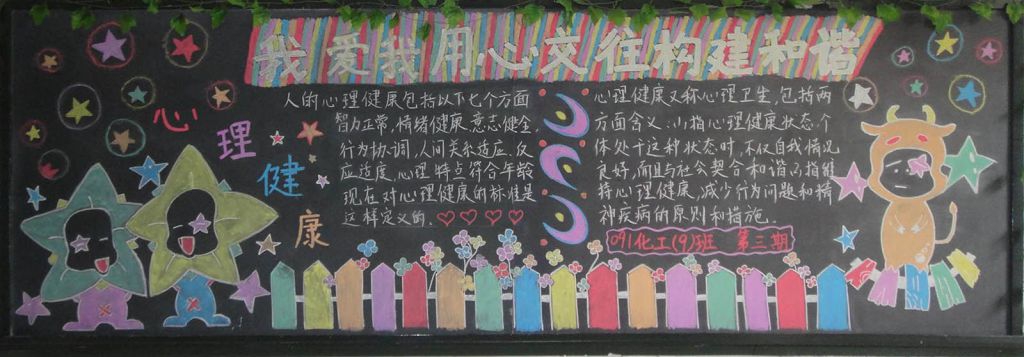 我爱我用心交往构建和谐
心理健康
人的心理健康包括以下七个方面
智力正常,情绪健康,意志健全,
行为协调,人间关系适应,仅
应适度,心理特点符合年龄
现在对心理健康的标准是
这样定义的.
心理健康又称心理卫生,包括两
方面含义:小指心理健康状态,个
体处于这种状态时,不仅自我情况
良好,而且与社会契合和谐的指维
持心理健康,减少行为问题和精
神疾病的原则和措施.
091化工(9)班 第三期